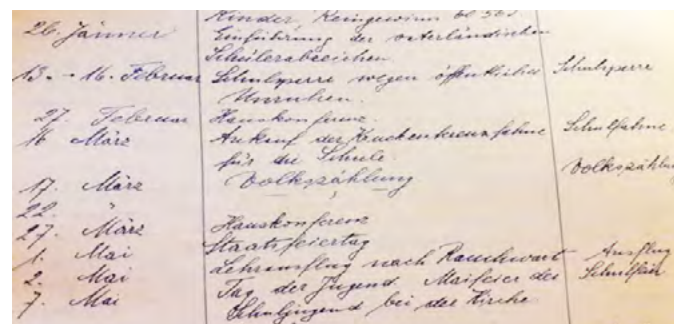 Kinder, Reingewinn 60 S 50
26. Jänner Einführung der vaterländischen
Schülerabzeichen.
13. - 16. Februar Schulsperre wegen öffentlicher Schulsperre
Unruhen.
27. Februar Hauskonferenz.
16 März Ankauf der Kruckenkreuzfahne Schulfahne.
für die Schule.
17. März Volkszählung Volkszählung
22. "
27. März Hauskonferenz
1. Mai Staatsfeiertag
2. Mai Lehrausflug nach Rauchwart Ausflug
7. Mai Tag der Jugend Maifeier der Schulfeier
Schuljugend bei der Kirche